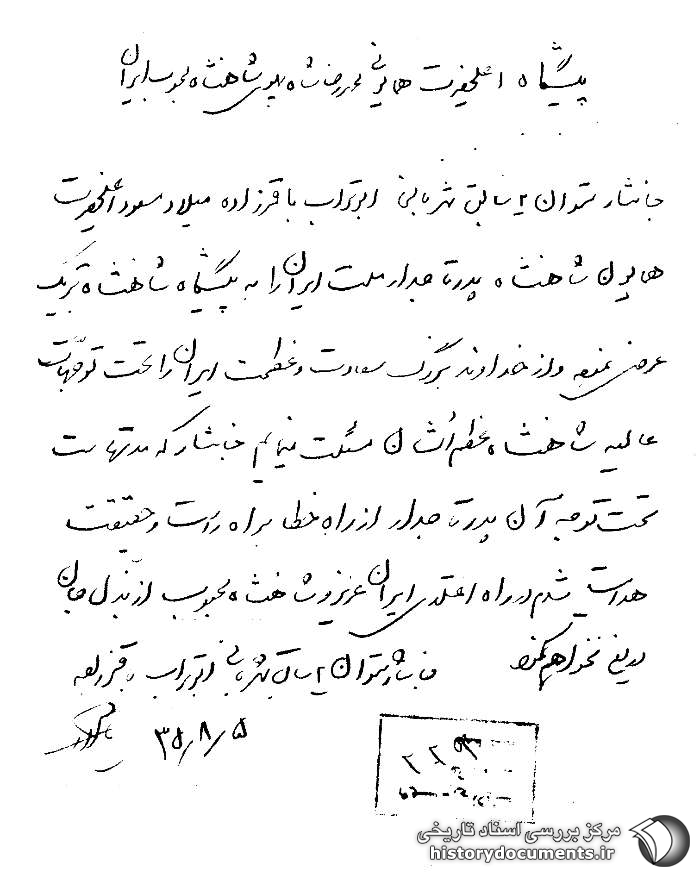 پیشگاه اعلیحضرت همایونی محمدرضا شاه پهلوی شاهنشاه محبوب ایران
جانثار ستوان ۲ سابق شهربانی ابوتراب باقرزاده میلاد مسعود اعلیحضرت
همایون شاهنشاه پدر تاجدار ملت ایران را به پیشگاه شاهنشاه تبریک
عرض نموده و از خداوند بزرگ سعادت و عظمت ایران را تحت توجهات
عالیه شاهنشاه عظیم الشان مسئلت مینمایم جانثار که مدتهاست
تحت توجه آن پدر تاجدار از راه خطا براه راست و حقیقت
هدایت شدم در راه اعتلای ایران عزیز و شاهنشاه محبوب از بذل جان
دریغ نخواهم کرد
جانثار ستوان ۲ سابق شهربانی ابوتراب باقرزاده
۳۵/۸/۵
مرکز بررسی اسناد تاریخی
historydocuments.ir